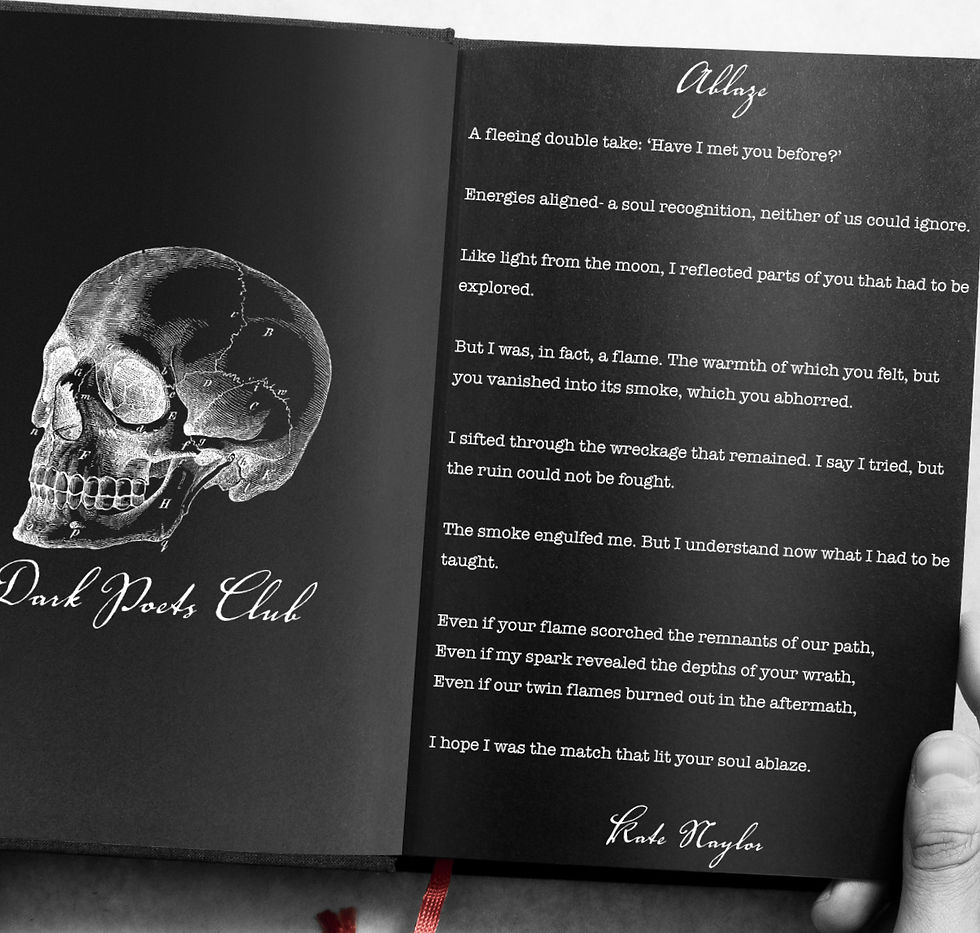 Dark Poets Club
Ablaze
A fleeing double take: ‘Have I met you before?’
Energies aligned- a soul recognition, neither of us could ignore.
Like light from the moon, I reflected parts of you that had to be
explored.
But I was, in fact, a flame. The warmth of which you felt, but
you vanished into its smoke, which you abhorred.
I sifted through the wreckage that remained. I say I tried, but
the ruin could not be fought.
The smoke engulfed me. But I understand now what I had to be
taught.
Even if your flame scorched the remnants of our path,
Even if my spark revealed the depths of your wrath,
Even if our twin flames burned out in the aftermath,
I hope I was the match that lit your soul ablaze.
Kate Naylor